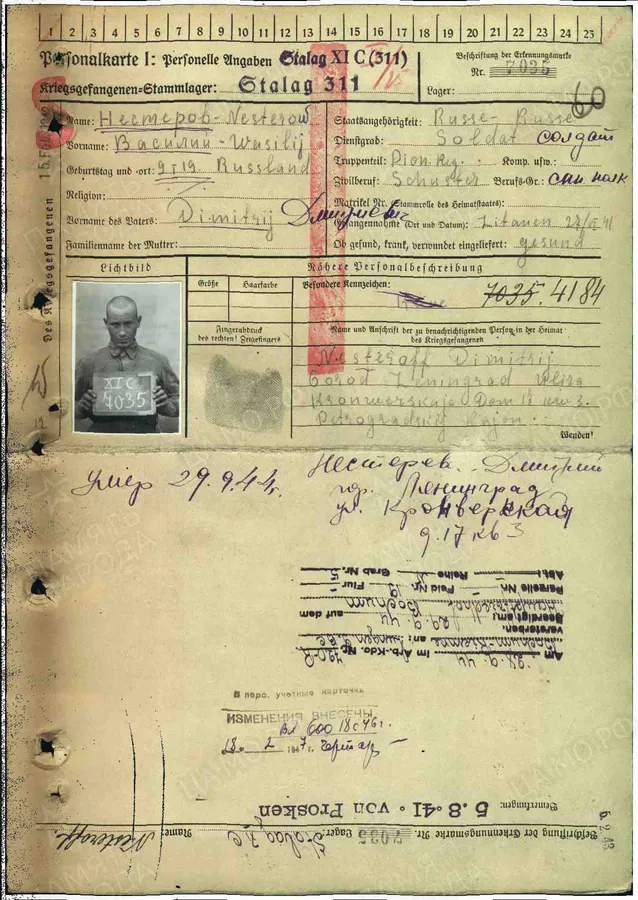 1 2 3 4 5 6 7 8 9 10 11 12 13 14 15 16 17 18 19 20 21 22 23 24 25
Personalkarte I: Personelle Angaben Stalag XI C (311)
Kriegsgefangenen-Stammlager: Stalag 311
Beschriftung der Erkennungsmarke
Nr. 7035
Lager:
60
Des Kriegsgefangenen
Name: Нестеров-Nesterow
Vorname: Василий-Wasilij
Geburtstag und -ort: 9.I.19. Russland
Religion:
Vorname des Vaters: Dimitrij
Familienname der Mutter:
Staatsangehörigkeit: Russe-Russe
Dienstgrad: Soldat солдат
Truppenteil: Pion.Reg. Komp. usw.:
Zivilberuf: Schuster Berufs-Gr.:
Matrikel Nr. (Stammrolle des Heimatstaates):
Gefangennahme (Ort und Datum): Litauen
Ob gesund, krank, verwundet eingeliefert: gesund
Lichtbild
XI C
7035
Nähere Personalbeschreibung
Größe Haarfarbe Besondere Kennzeichen:
7035.4184
Fingerabdruck
des rechten! Zeigefingers
Name und Anschrift der zu benachrichtigenden Person in der Heimat
des Kriegsgefangenen
Nesteroff Dimitrij
Gorod Leningrad Uliza
Kronwerskaja Dom 17 kw 3.
Petrogradskij Rajon
Wenden!
умер 29.9.44г.
Нестерев. Дмитрий
гор. Ленинград
ул. Кронверкская
д. 17 кв 3
Abt. Reihe Grab Nr. 5
Parzelle Nr. Feld Nr. 19 Flur
Bochum
Beerdigt am: 29.9.44 auf dem
verstorben.
Am 29.9.44 im Arb.-Kdo. Nr.
В перс. учетные карточки
ИЗМЕНЕНИЯ ВНЕСЕНЫ
18. 2 1947г.
Bemerkungen: 5.8.41. von Prosken
Beschriftung der Erkennungsmarke Nr. 7035 Lager: Stalag XI C Name: Nesteroff.